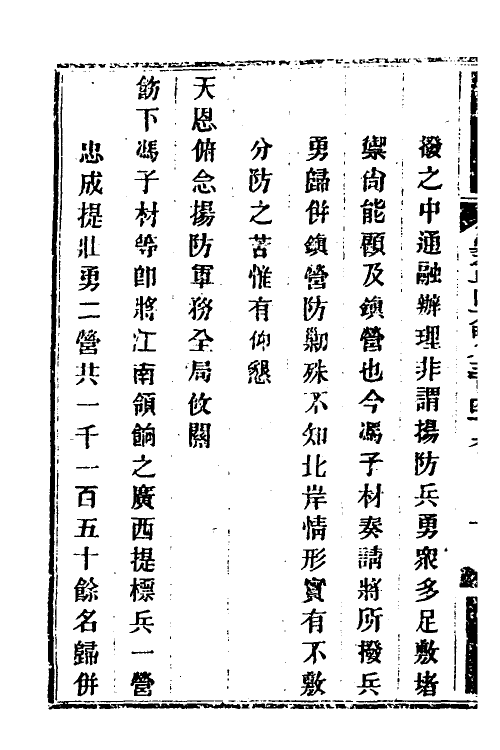 撥之中通融辦理非謂揚防兵勇衆多足敷堵
禦尚能顧及鎮營也今馮子材奏請將所撥兵
勇歸併鎮營防勦殊不知北岸情形實有不敷
分防之苦惟有仰懇
天恩俯念揚防軍務全局攸關
飭下馮子材等卽將江南領餉之廣西提標兵一營
忠成提壯勇二營共一千一百五十餘名歸併